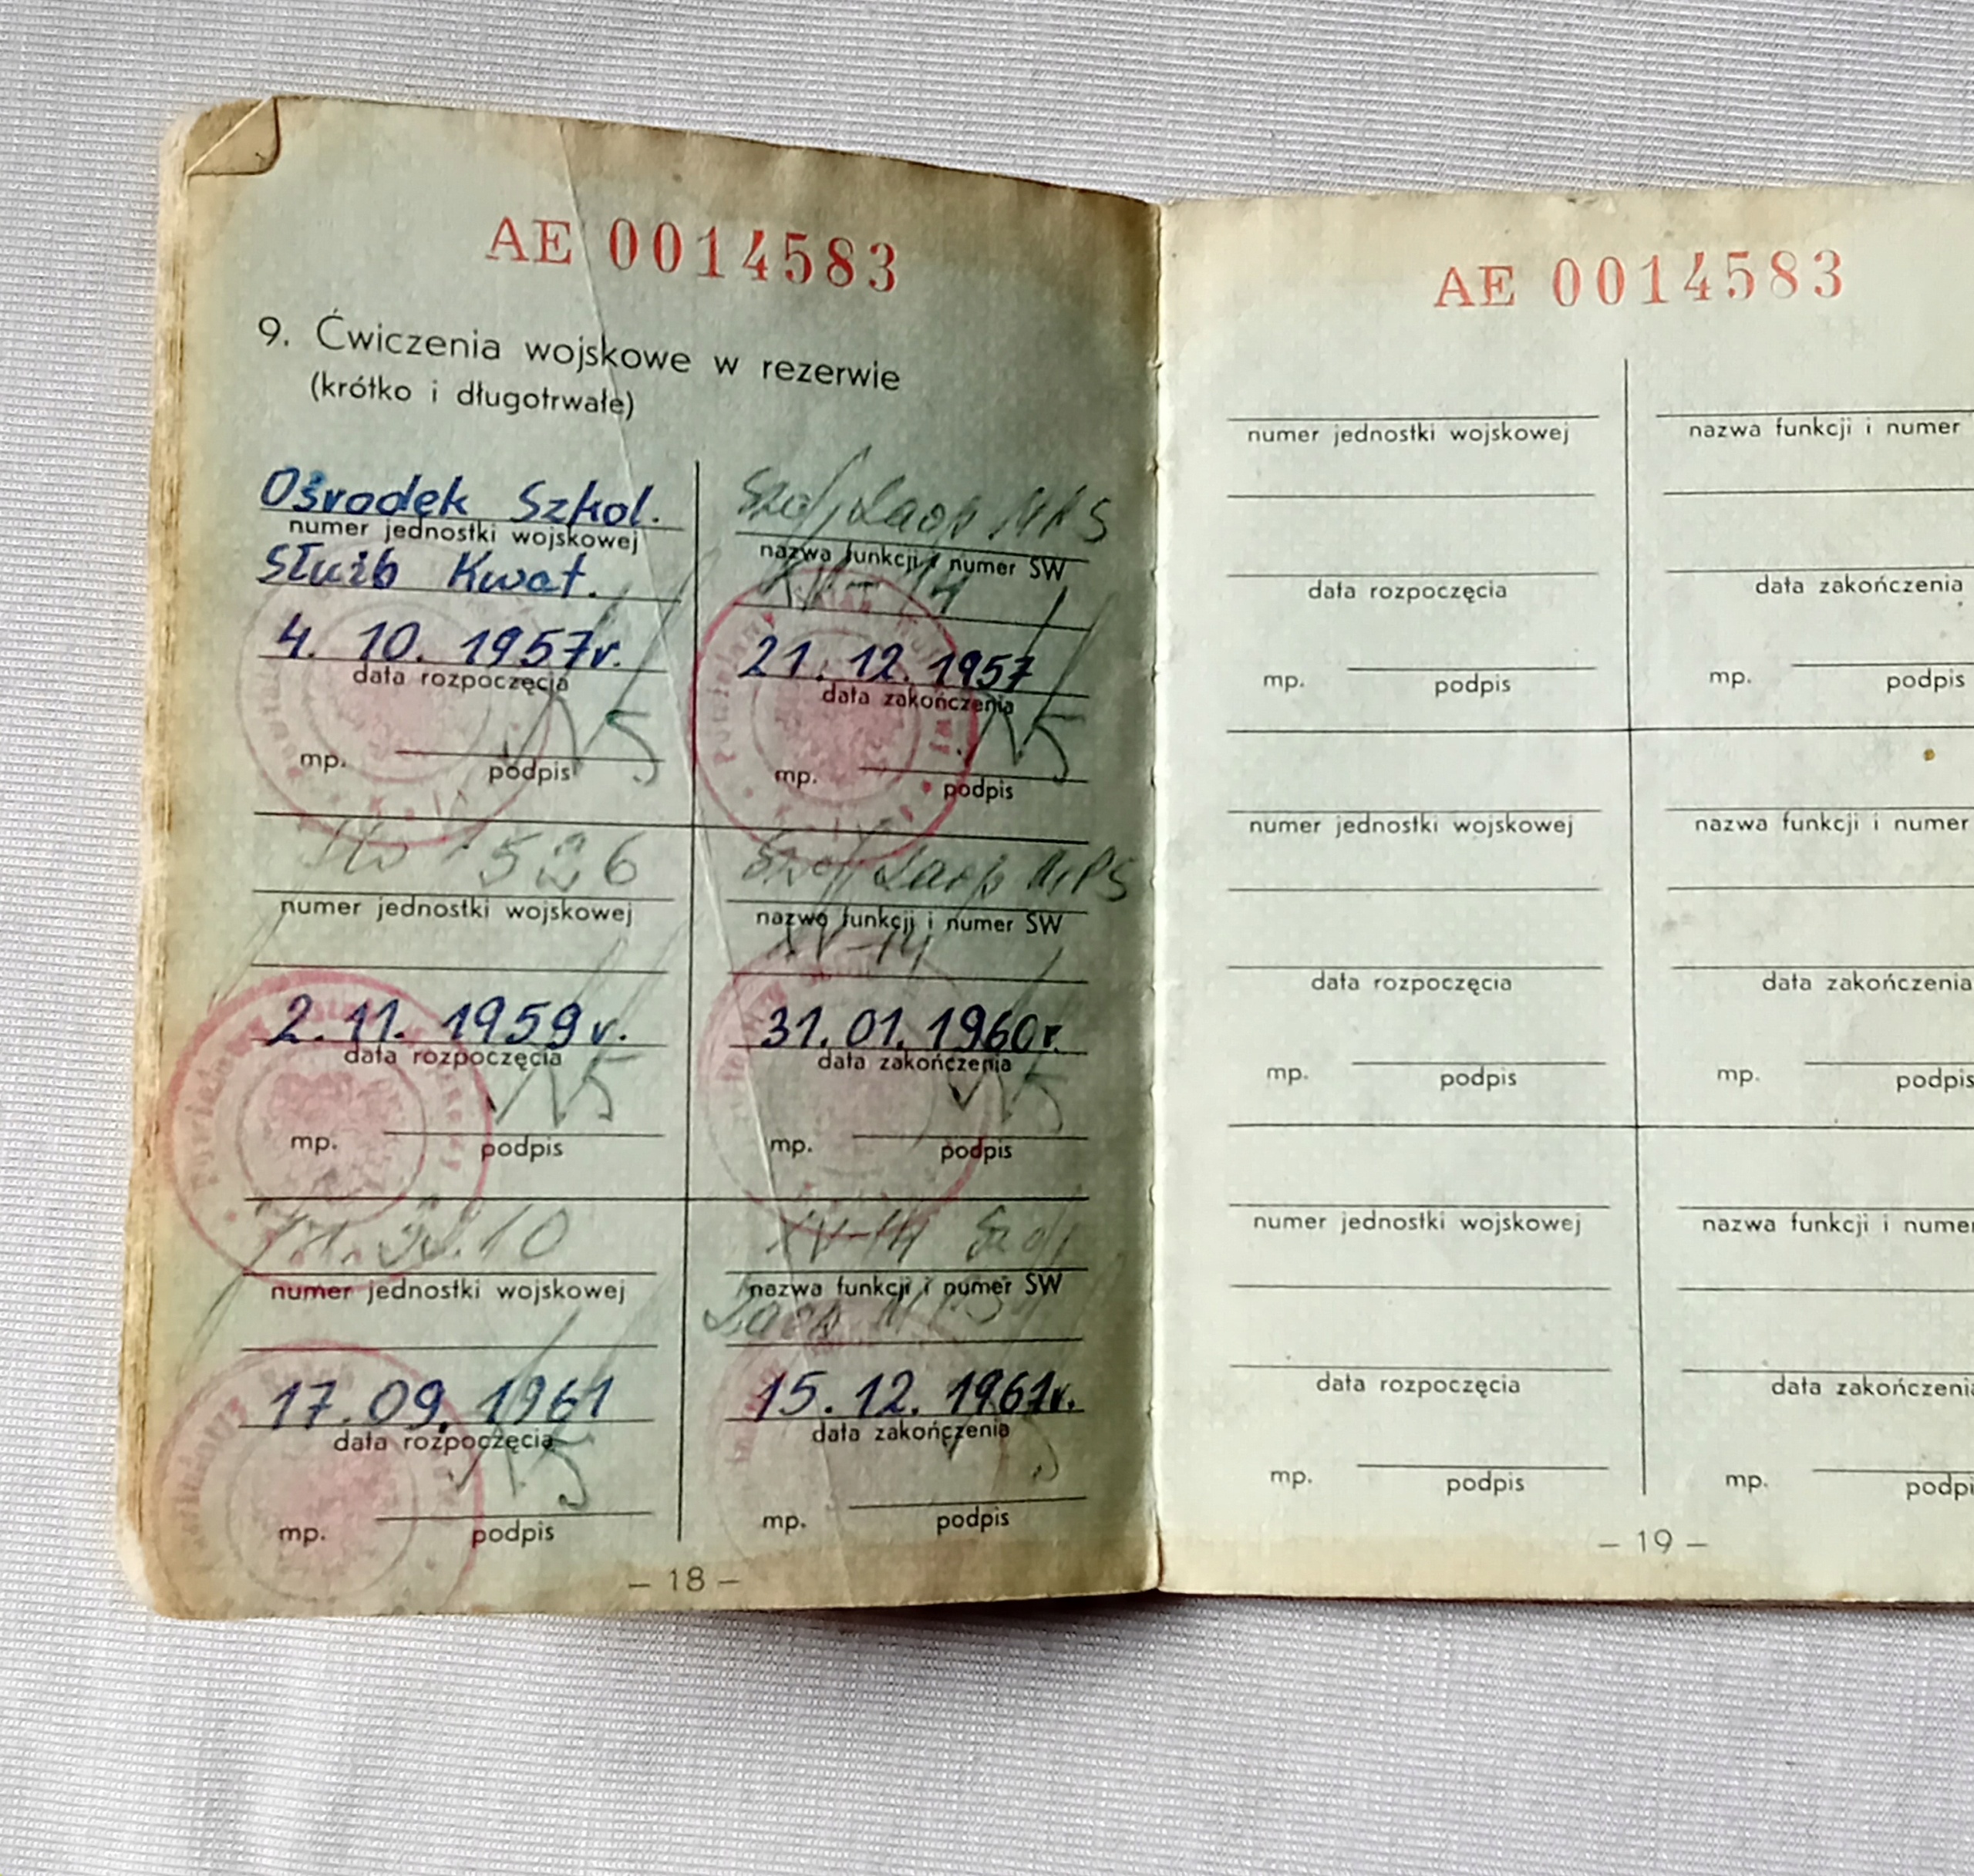 AE 0014583
9. Ćwiczenia wojskowe w rezerwie
(krótko i długotrwałe)
Ośrodek Szkol.
numer jednostki wojskowej
Służb Kwat.
4. 10. 1957r.
data rozpoczęcia
mp.
podpis
Szef Zaop MPS
nazwa funkcji i numer SW
XV-14
21. 12. 1957
data zakończenia
mp.
podpis
526
numer jednostki wojskowej
2. 11. 1959r.
data rozpoczęcia
mp.
podpis
Szef Zaop MPS
nazwa funkcji i numer SW
XV-14
31. 01. 1960r.
data zakończenia
mp.
podpis
numer jednostki wojskowej
17. 09. 1961
data rozpoczęcia
mp.
podpis
XV-14 Szef
nazwa funkcji i numer SW
Zaop MPS
15. 12. 1961r.
data zakończenia
mp.
podpis
– 18 –
AE 0014583
numer jednostki wojskowej
data rozpoczęcia
mp.
podpis
nazwa funkcji i numer
data zakończenia
mp.
podpis
numer jednostki wojskowej
data rozpoczęcia
mp.
podpis
nazwa funkcji i numer
data zakończenia
mp.
podpis
numer jednostki wojskowej
data rozpoczęcia
mp.
podpis
nazwa funkcji i numer
data zakończenia
mp.
podpi
– 19 –